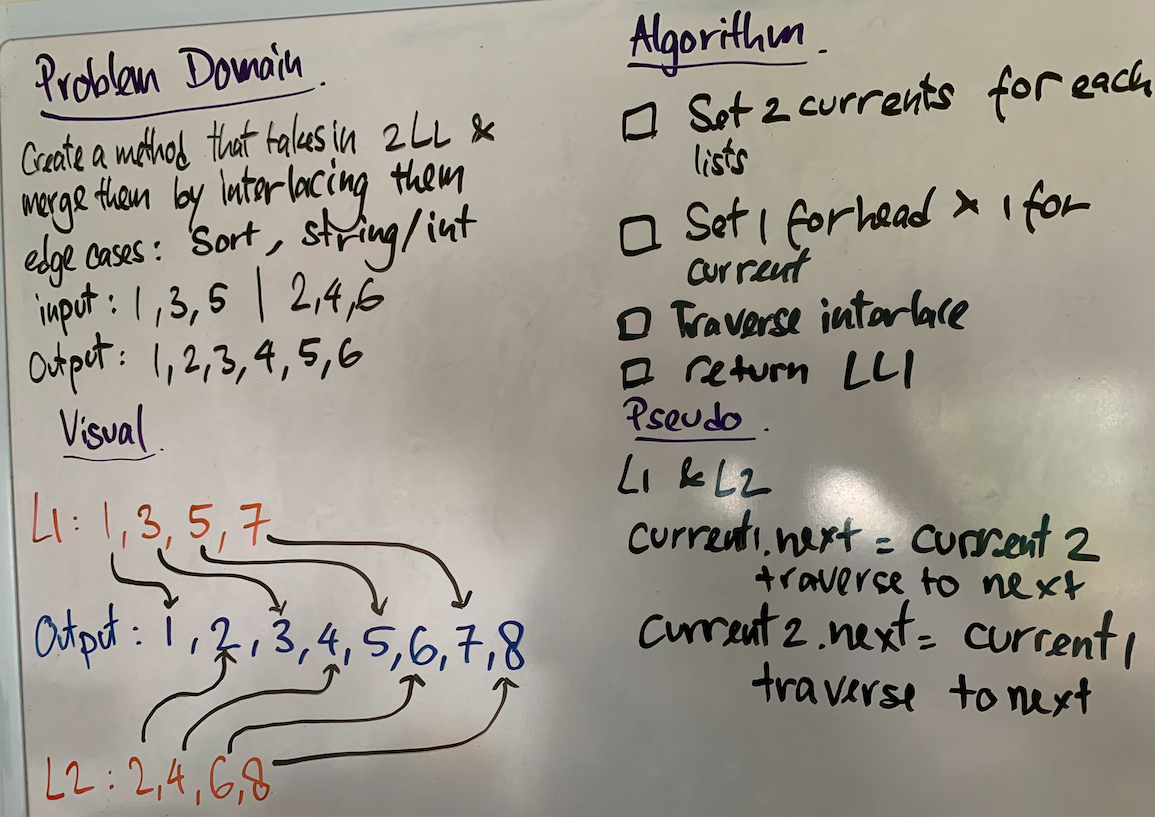 Problem Domain.
Create a method that takes in 2LL &
merge them by interlacing them
edge cases: Sort, string/int
input: 1,3,5 | 2,4,6
Output: 1,2,3,4,5,6
Visual.
L1: 1,3,5,7
Output: 1,2,3,4,5,6,7,8
L2: 2,4,6,8
Algorithm.
Set 2 currents for each
lists
Set 1 for head & 1 for
current
Traverse interlace
return LL1
Pseudo.
L1 & L2
current1.next = current 2
traverse to next
Current 2.next = current1
traverse to next